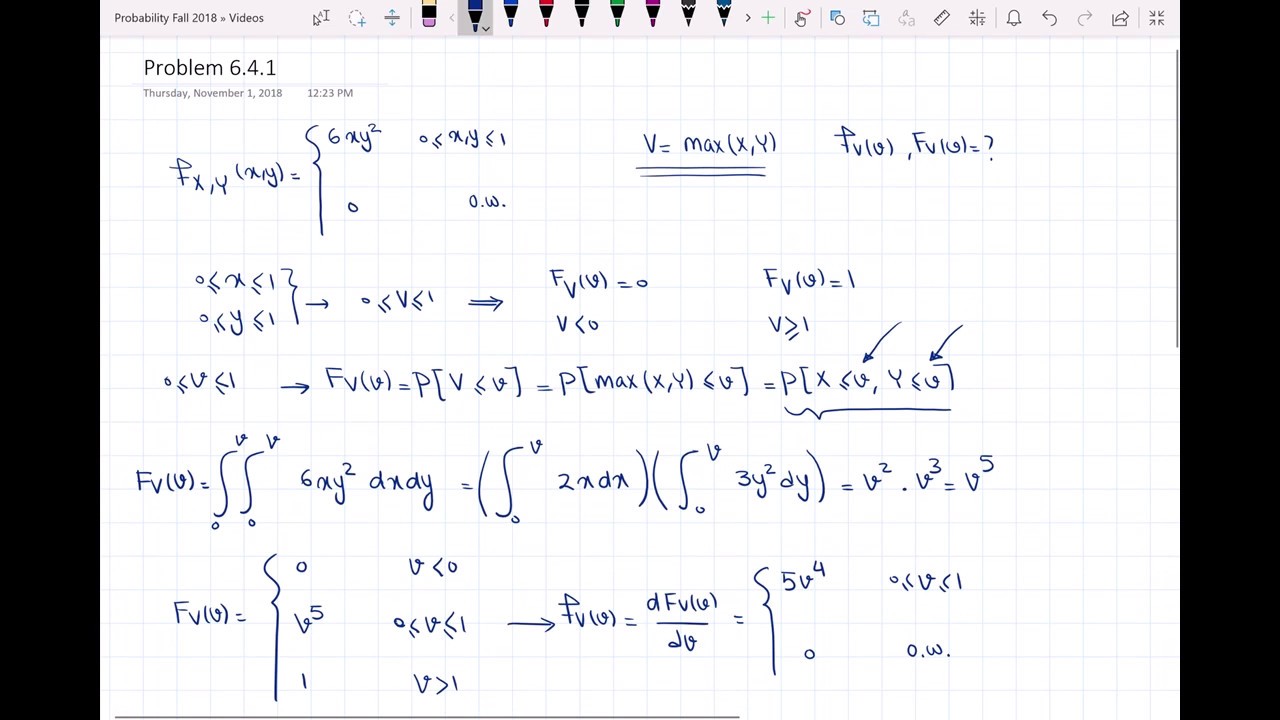 Probability Fall 2018 » Videos
Problem 6.4.1
Thursday, November 1, 2018 12:23 PM
f_{X,Y}(x,y) = { 6xy² 0≤x,y≤1 V = max(X,Y) f_V(v), F_V(v) = ?
0 o.w.
0≤x≤1 } → 0≤V≤1 ⟹ F_V(v) = 0 F_V(v) = 1
0≤y≤1 V<0 V≥1
0≤v≤1 → F_V(v) = P[V≤v] = P[max(X,Y)≤v] = P[X≤v, Y≤v]
F_V(v) = ∫₀^v ∫₀^v 6xy² dxdy = (∫₀^v 2xdx)(∫₀^v 3y²dy) = v² . v³ = v⁵
F_V(v) = { 0 v<0
v⁵ 0≤v≤1 → f_V(v) = dF_V(v)/dv = { 5v⁴ 0≤v≤1
1 V>1 0 o.w.